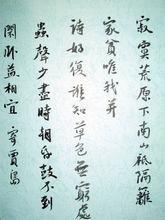 寂寞荒原下南山祇隔籬
家貧唯我并
詩好復誰知草色無窮處
蟲聲少盡時朝昏鼓不到
閑卧益相宜 寄賈島